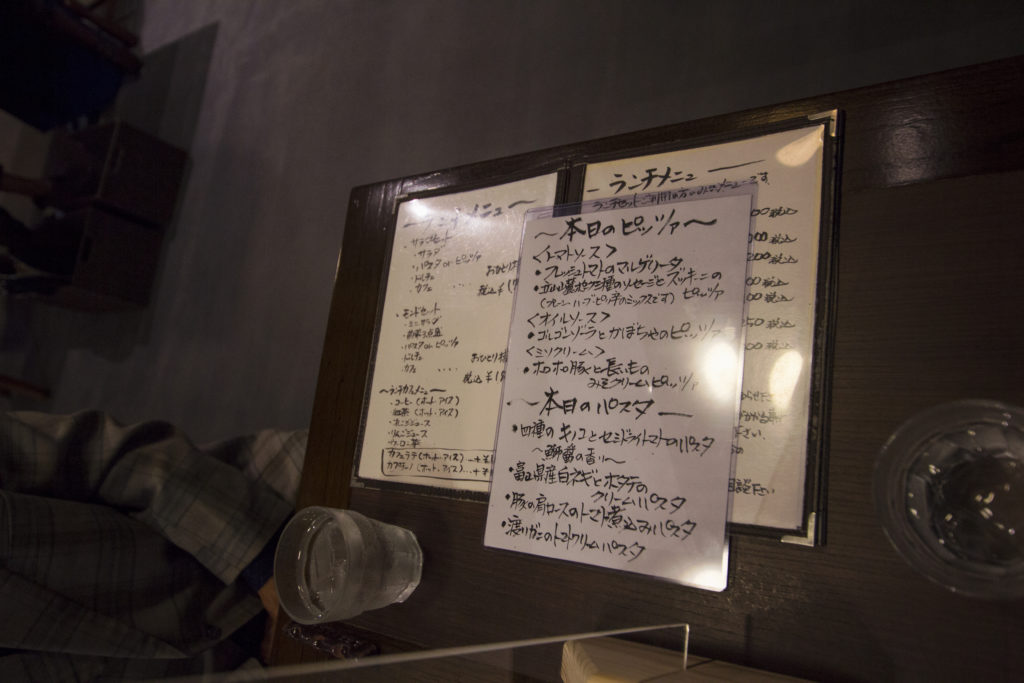 ランチメニュー
・サラダセット
・サラダ
・パスタ or ピッツァ
・ドルチェ
・カフェ ‥‥
おひとり様
税込 ¥1
・モンドセット
・ミニサラダ
・前菜3点盛
・パスタ or ピッツァ
・ドルチェ
・カフェ ‥‥
おひとり様
税込 ¥1
〜ランチカフェメニュー〜
・コーヒー(ホット・アイス)
・紅茶(ホット・アイス)
・オレンジジュース
・りんごジュース
・ウーロン茶
カフェラテ(ホット・アイス)‥+¥
カプチーノ(ホット、アイス)‥+¥
〜本日のピッツァ〜
〈トマトソース〉
・フレッシュトマトのマルゲリータ
・立山墓ポーク三種のソーセージとズッキーニの
(プレーン・ハーブ・ピリ辛のミックスです) ピッツァ
〈オイルソース〉
・ゴルゴンゾーラとかぼちゃのピッツァ
〈ミソクリーム〉
・ホロホロ豚と長いもの
みそクリームピッツァ
〜本日のパスタ〜
・四種のキノコとセミドライトマトのパスタ
〜醤の香り〜
・富山県産白ネギとホタテの
クリームパスタ
・豚の肩ロースのトマト煮込みパスタ
・渡りガニのトマトクリームパスタ
ランチメニュー
00 税込
00 税込
200 税込
00 税込
00 税込
50 税込
00 税込